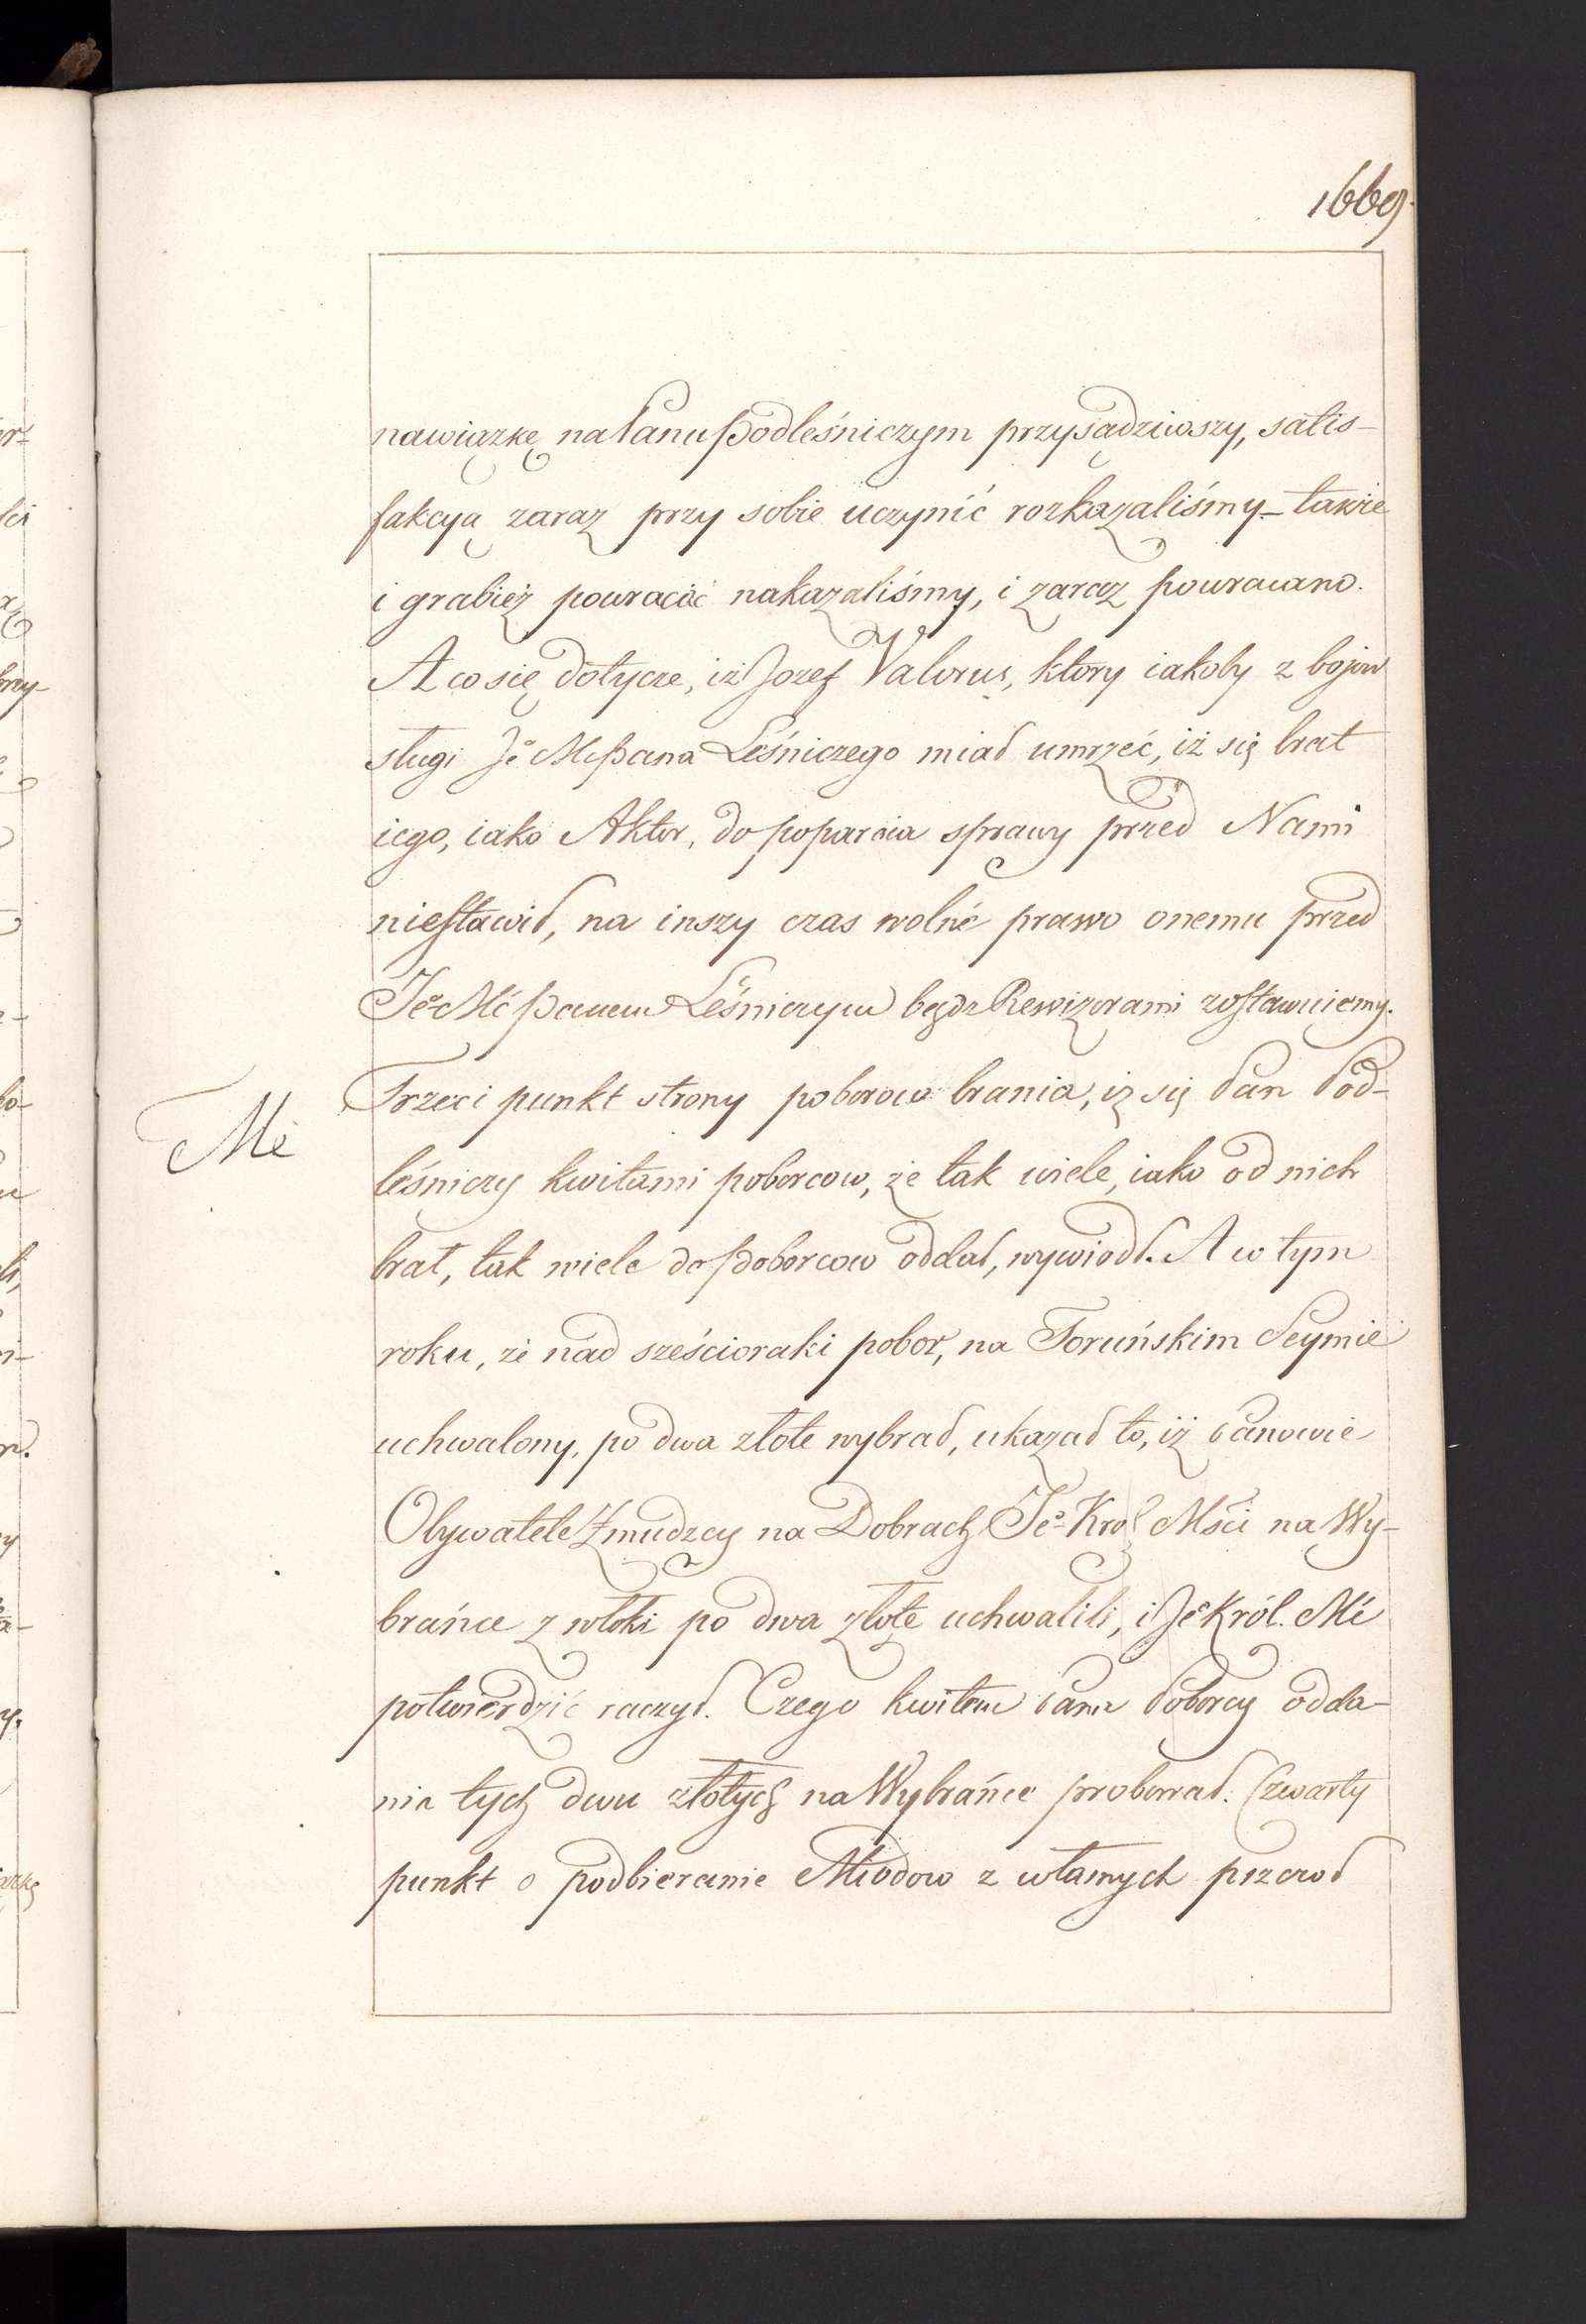 1669.
nawiązkę na Panu Podleśniczym przysądziwszy, satis-
fakcyą zaraz przy sobie uczynić rozkazaliśmy – także
i grabież powracać nakazaliśmy, i zaraz powracano.
A co się dotycze, iż Jozef Valorus, ktory iakoby z bojow
sługi Jº Mć Pana Leśniczego miał umrzeć, iż się brat
iego, iako Aktor, do poparcia sprawy przed Nami
niestawił, na inszy czas wolné prawo onemu przed
Jeº Mć Panem Leśniczym bądz Rewizorami zostawuiemy.
Trzeci punkt strony poborow brania, iż się Pan Pod-
Mć
leśniczy kwitami poborcow, że tak wiele, iako od nich
brał, tak wiele do Poborcow oddał, wywiodł. A w tym
roku, że nad sześcioraki pobor, na Toruńskim Seymie
uchwalony, po dwa złote wybrał, ukazał to, iż Panowie
Obywatele Żmudzcy na Dobrach Jeº Krol Mści na Wy-
brańce z włoki po dwa złote uchwalili, i Jeº Król. Mć
potwierdzić raczył. Czego kwitem Pana Poborcy odda-
nie tych dwu złotych na Wybrańce probował. Czwarty
punkt o podbieranie Miodow z włamych pszczoł